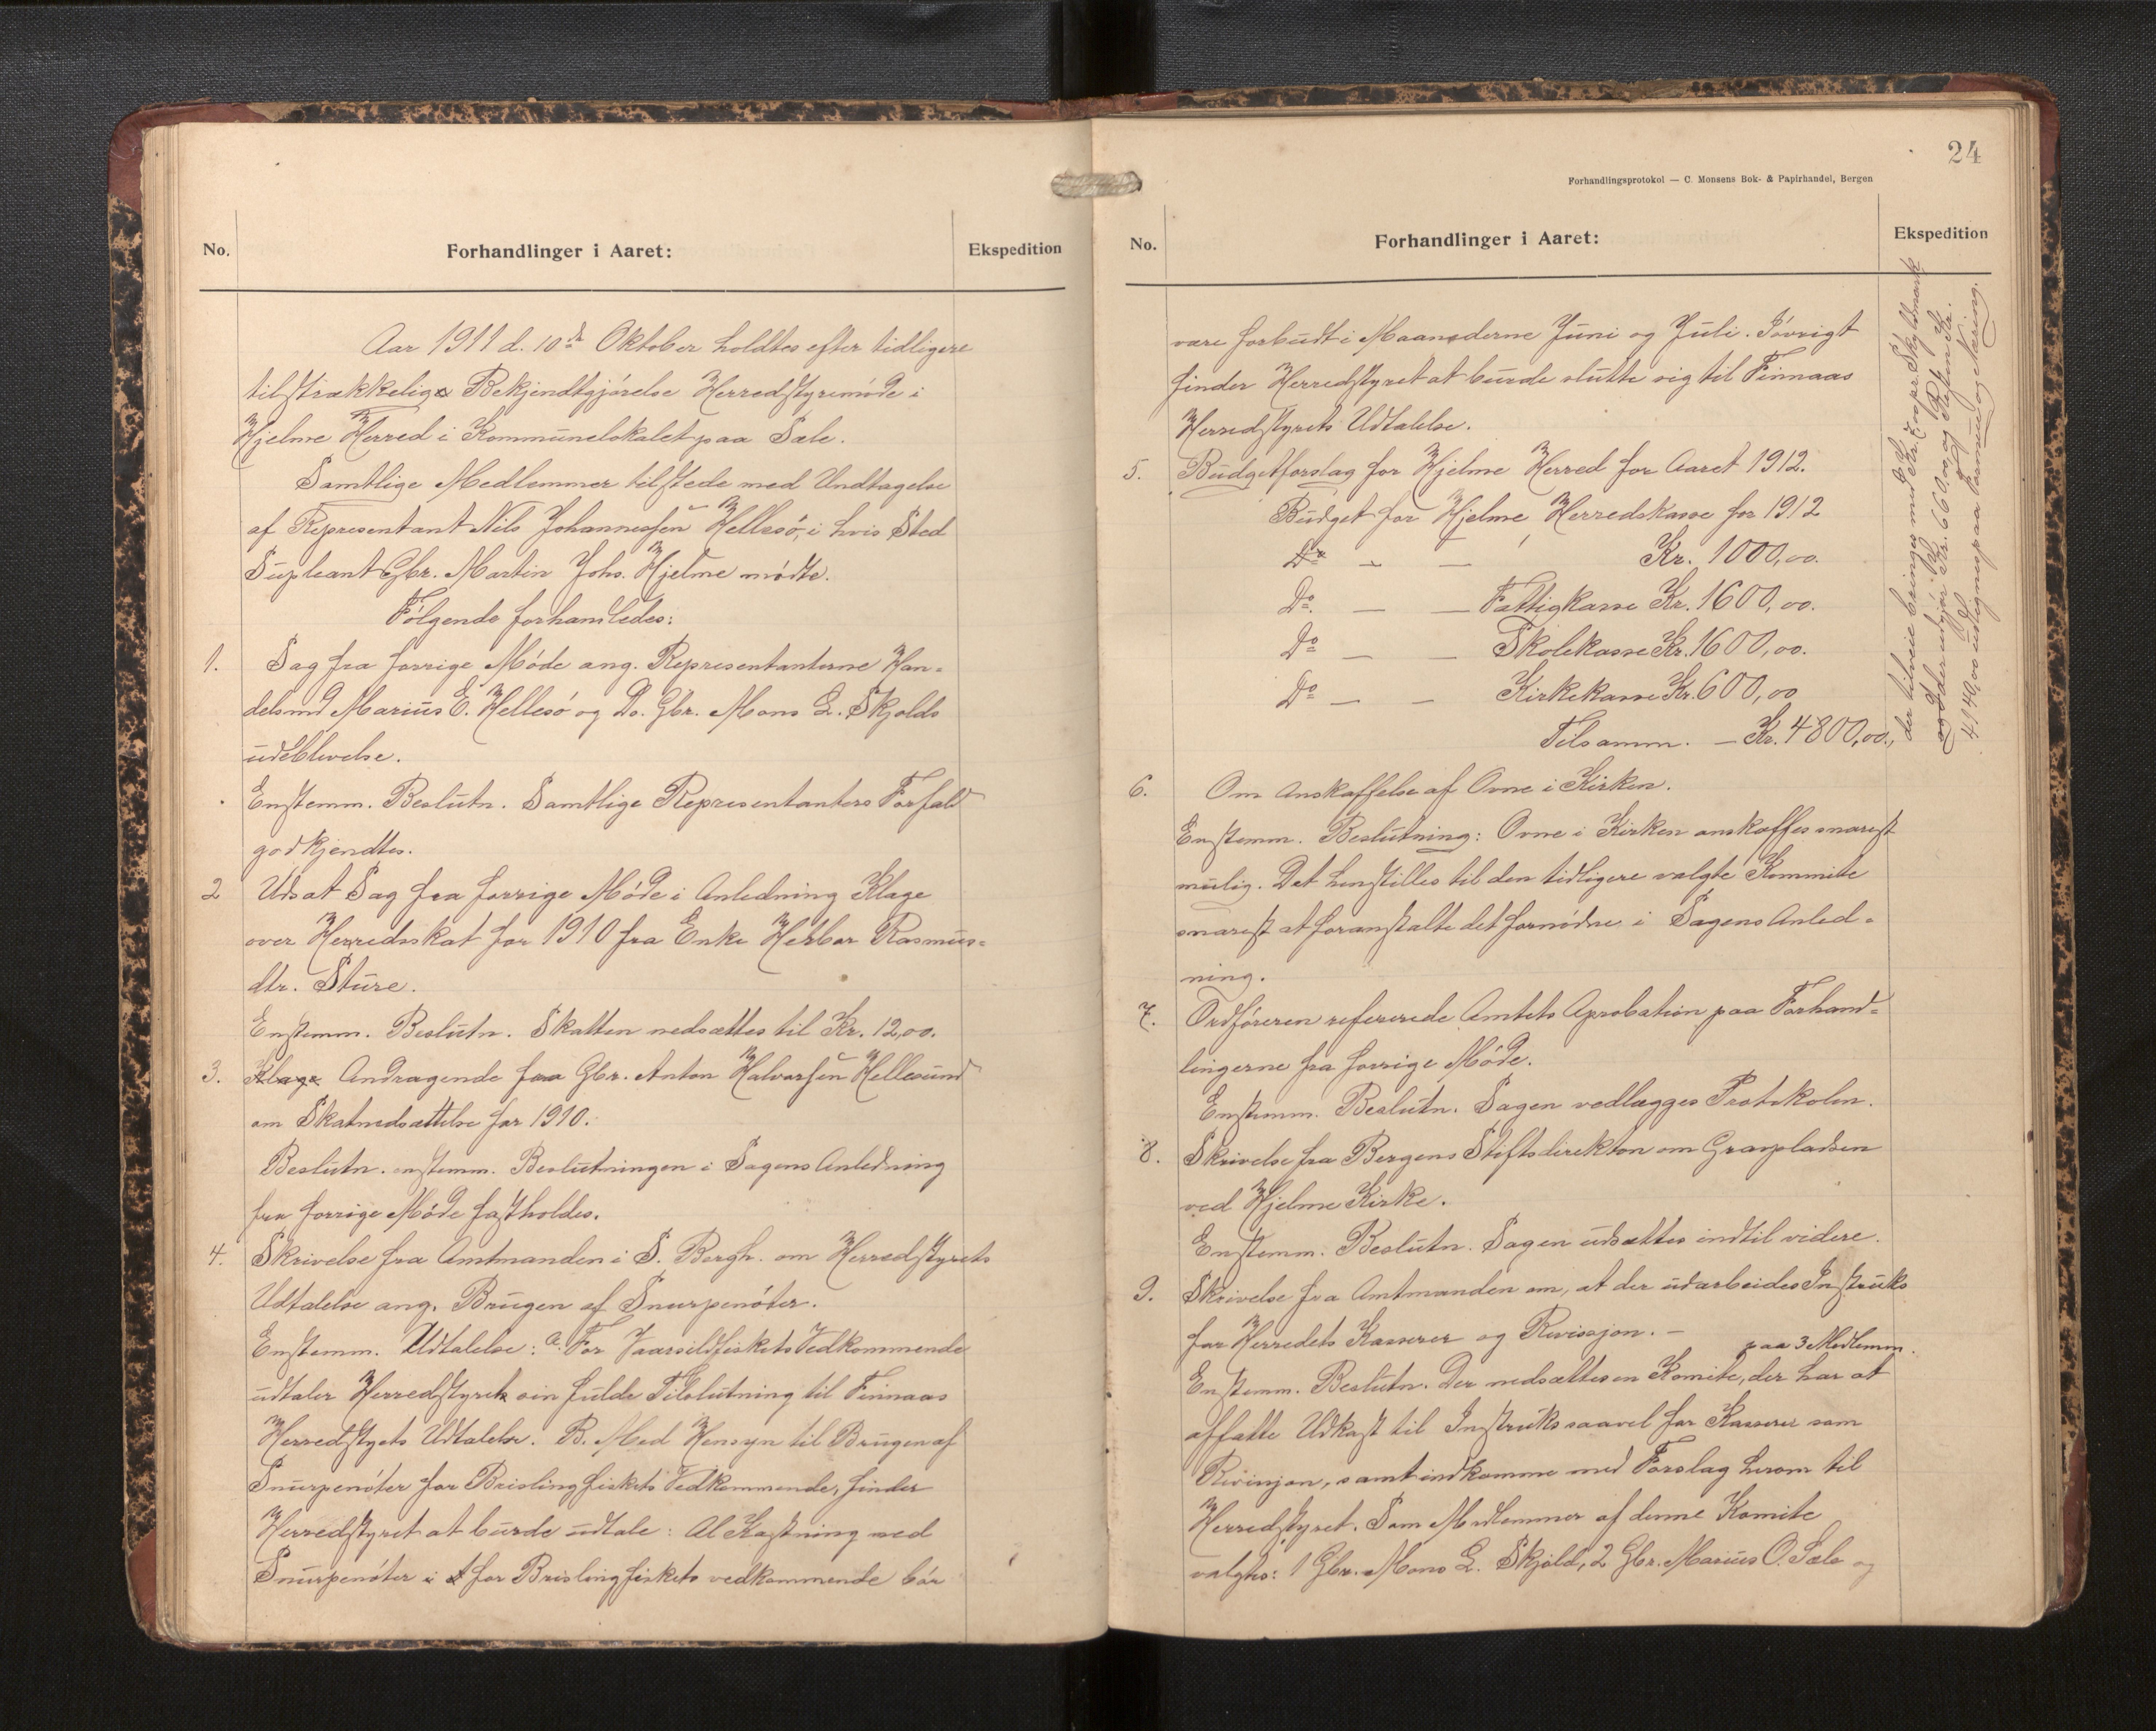 No. Forhandlinger i Aaret: Ekspedition
Aar 1911 d. 10de Oktober holdtes efter tidligere
tilstrækkelig Bekjendtgjørelse Herredstyremøde i
Hjelme Herred i Kommunelokalet paa Sæle.
Samtlige Medlemmer tilstede med Undtagelse
af Representant Nils Johannessen Hellesø, i hvis Sted
Supleant Gbr. Martin Johs. Hjelme mødte.
Følgende forhandledes:
1. Sag fra forrige Møde ang. Representanterne Han-
delsmd Marius E. Hellesø og Do. Gbr. Mons L. Skjolds
udeblivelse.
Enstemm. Beslutn. Samtlige Representanters Forfald
godkjendtes.
2 Udsat Sag fra forrige Møde i Anledning Klage
over Herredsskat for 1910 fra Enke Herbor Rasmus-
dtr. Sture.
Enstemm. Beslutn. Skatten nedsættes til Kr. 12,00.
3. Klage Andragende fra Gbr. Anton Halvorsen Hellesund
om Skatnedsættelse for 1910.
Beslutn. enstemm. Beslutningen i Sagens Anledning
fra forrige Møde fastholdes.
4. Skrivelse fra Amtmanden i S. Bergh. om Herredstyrets
Udtalelse ang. Brugen af Snurpenøter.
Enstemm. Udtalelse: a. For Vaarsildfiskets Vedkommende
udtaler Herredstyret sin fulde Tilslutning til Finnaas
Herredstyets Udtalelse. B. Med Hensyn til Brugen af
Snurpenøter for Brislingfiskets Vedkommende, finder
Herredstyret at burde udtale: Al Kastning med
Snurpenøter i for Brislingfiskets vedkommende bør
24
Forhandlingsprotokol — C. Monsens Bok- & Papirhandel, Bergen
No. Forhandlinger i Aaret: Ekspedition
være forbudt i Maanederne Juni og Juli. Iøvrigt
finder Herredstyret at burde slutte sig til Finnaas
Herredstyrets Udtalelse.
5. Budgetforslag for Hjelme Herred for Aaret 1912.
Budget for Hjelme Herredskasse for 1912
Do — — Kr. 1000,00.
Do. — — Fattigkasse Kr. 1600,00.
Do — — Skolekasse Kr. 1600,00.
Do — — Kirkekasse Kr. 600,00
Tilsamm. — Kr. 4800,00.,
der tilveie bringes med Kr. pr. Skyldmark
og der udgjør Kr. 660,00, og Resten Kr.
4140,00 udlignes paa Formue og Næring.
6. Om Anskaffelse af Ovne i Kirken.
Enstemm. Beslutning: Ovne i Kirken anskaffes snarest
mulig. Det henstilles til den tidligere valgte Kommite
snarest at foranstalte det fornødne i Sagens Anled-
ning.
7. Ordføreren refererede Amtets Aprobation paa Forhand-
lingerne fra forrige Møde.
Enstemm. Beslutn. Sagen vedlægges Protokolen.
8. Skrivelse fra Bergens Stiftsdirektion om Gravpladsen
ved Hjelme Kirke.
Enstemm. Beslutn. Sagen udsættes indtil videre.
9. Skrivelse fra Amtmanden om, at der udarbeides Instruks
for Herredets Kasserer og Revissjon. —
paa 3 Medlemm.
Enstemm. Beslutn. Der nedsættes en Komite, der har at
affatte Udkast til Instruks saavel for Kasserer som
Revisjon, samt indkomme med Forslag herom til
Herredstyret. Som Medlemmer af denne Komite
valgtes: 1 Gbr. Mons L. Skjold, 2 Gbr. Marius O. Sæle og